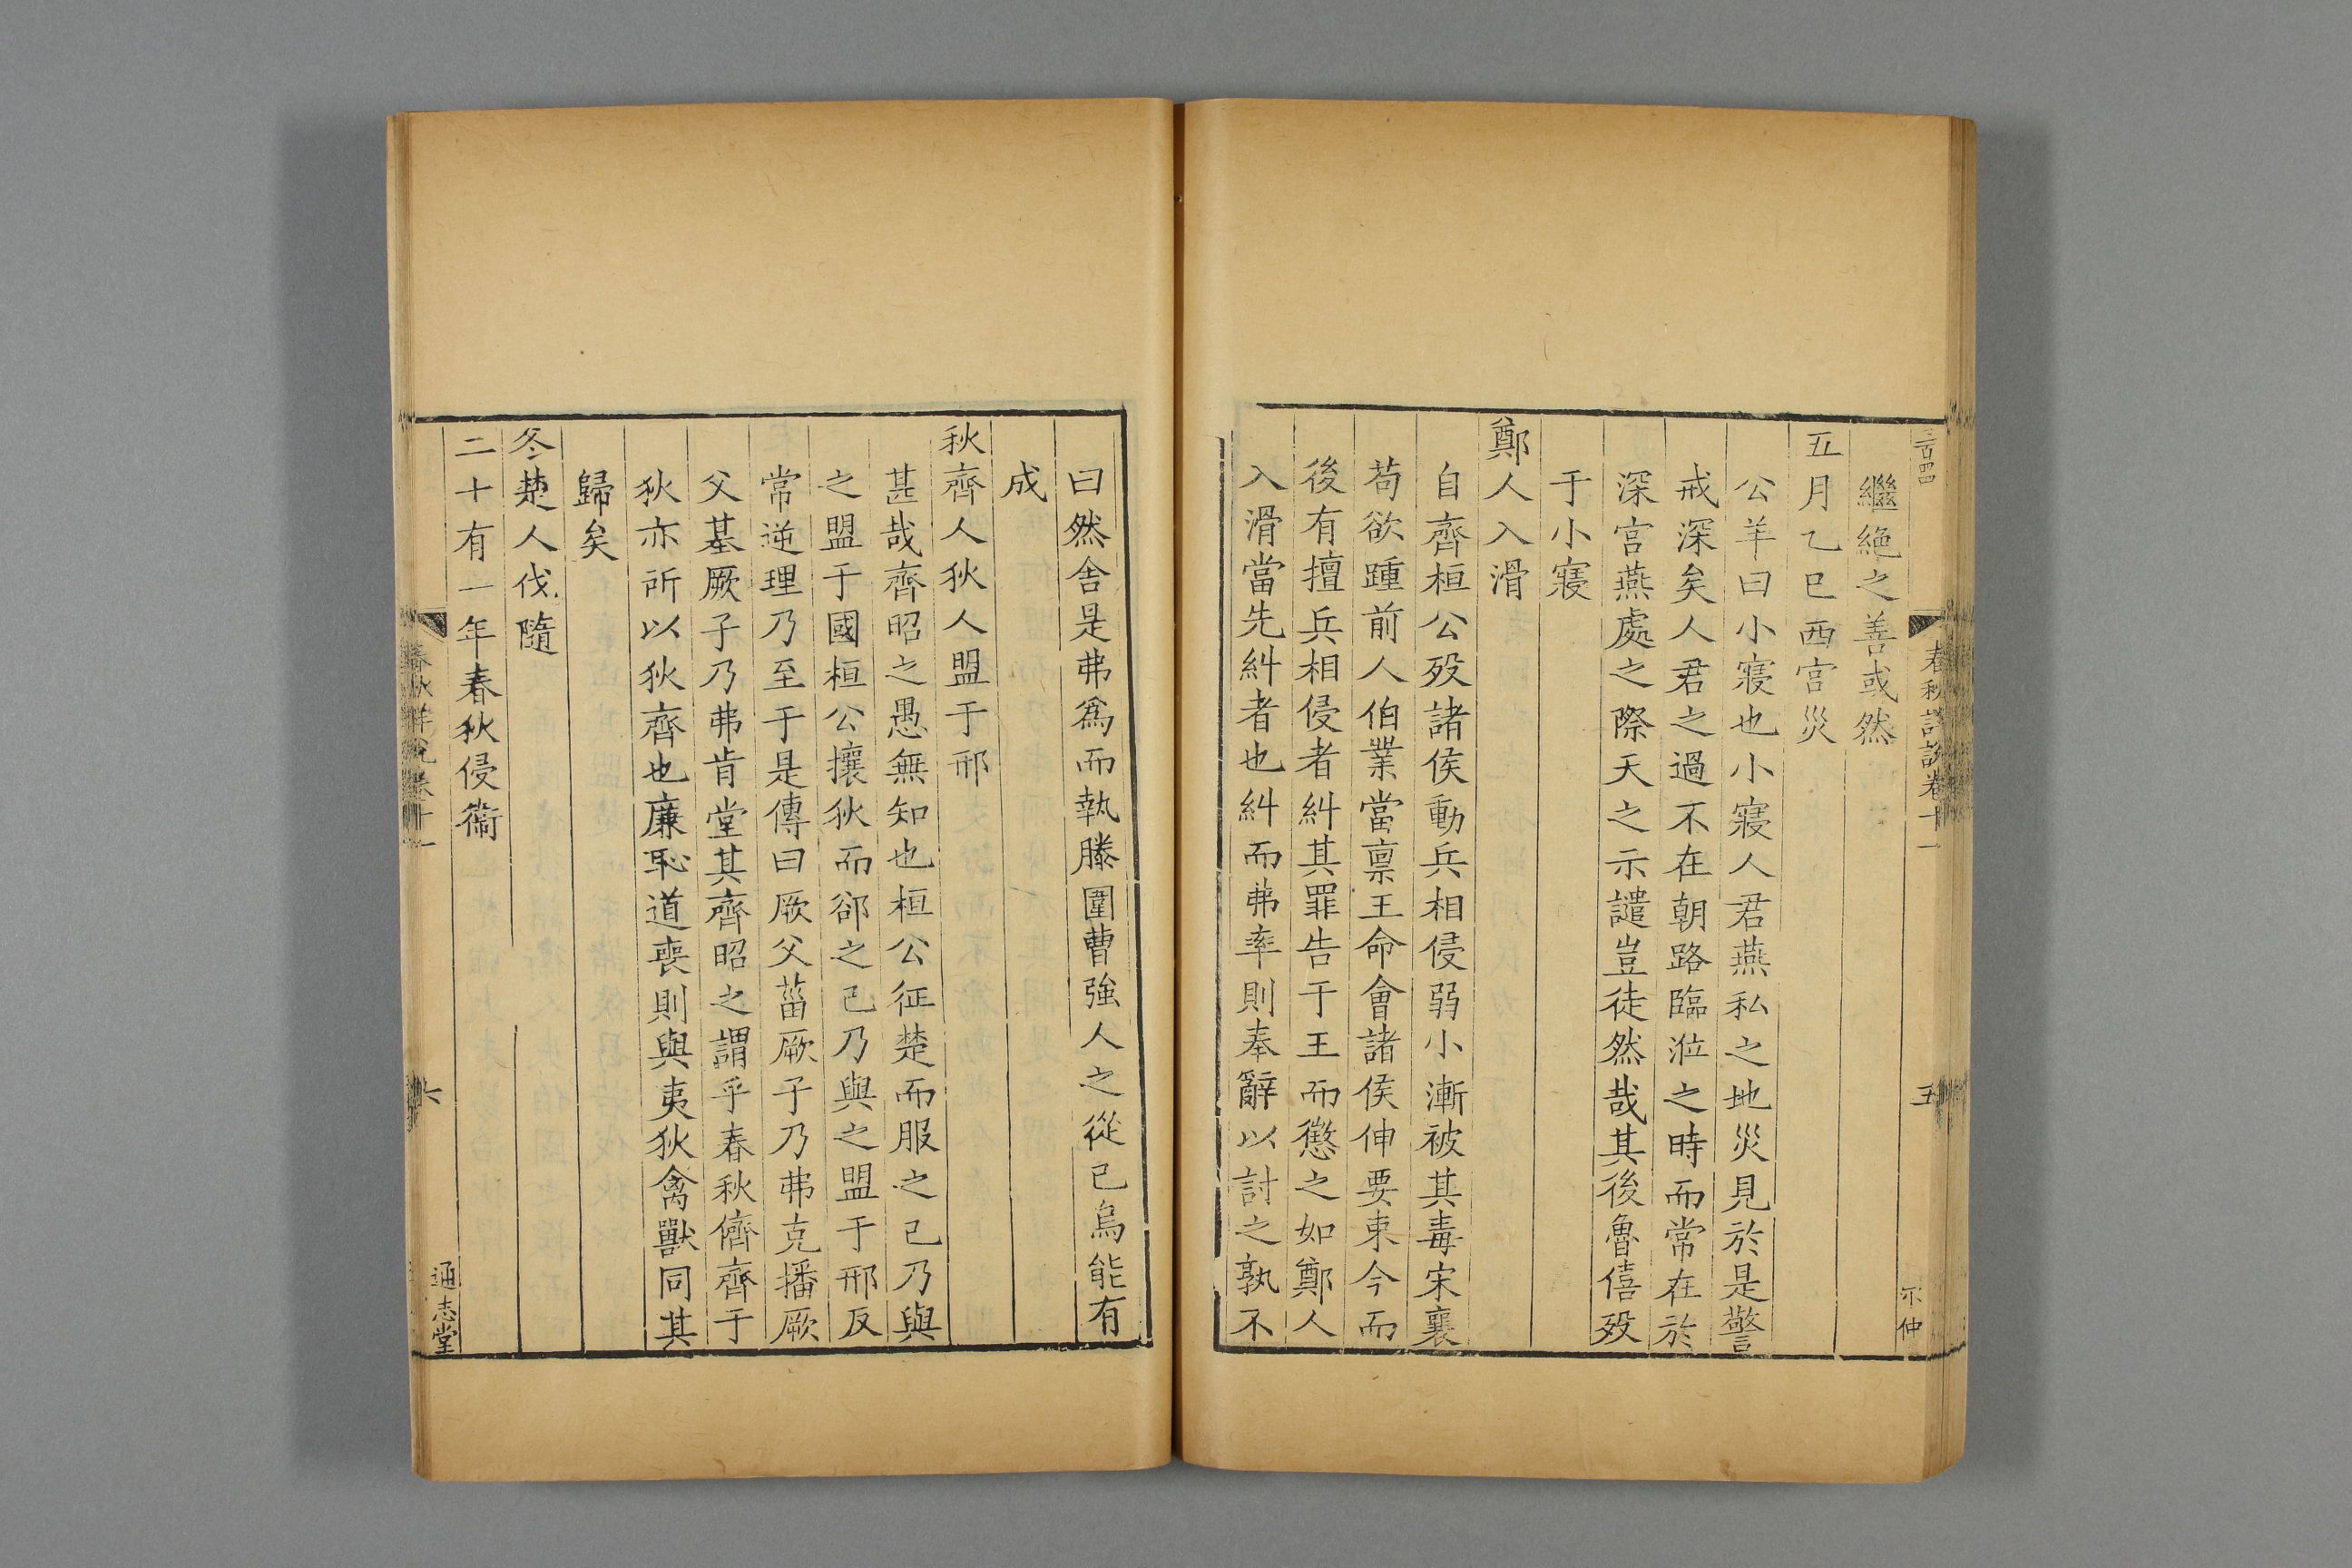 繼絕之善或然
五月乙巳西宮災
公羊曰小寢也小寢人君燕私之地災見於是警
戒深矣人君之過不在朝路臨涖之時而常在於
深宮燕處之際天之示譴豈徒然哉其後魯僖歿
于小寢
鄭人入滑
自齊桓公歿諸侯動兵相侵弱小漸被其毒宋襄
苟欲踵前人伯業當禀王命會諸侯伸要束今而
後有擅兵相侵者糾其罪告于王而懲之如鄭人
入滑當先糾者也糾而弗率則奉辭以討之孰不
曰然舍是弗爲而執滕圍曹強人之從已烏能有
成
秋齊人狄人盟于邢
甚哉齊昭之愚無知也桓公征楚而服之已乃與
之盟于國桓公攘狄而郤之己乃與之盟于邢反
常逆理乃至于是傳曰厥父菑厥子乃弗克播厥
父基厥子乃弗肯堂其齊昭之謂乎春秋儕齊于
狄亦所以狄齊也廉恥道喪則與夷狄禽獸同其
歸矣
冬楚人伐隨
二十有一年春狄侵衞
春秋詳說卷十一
五
春秋詳說卷十一
六
通志堂